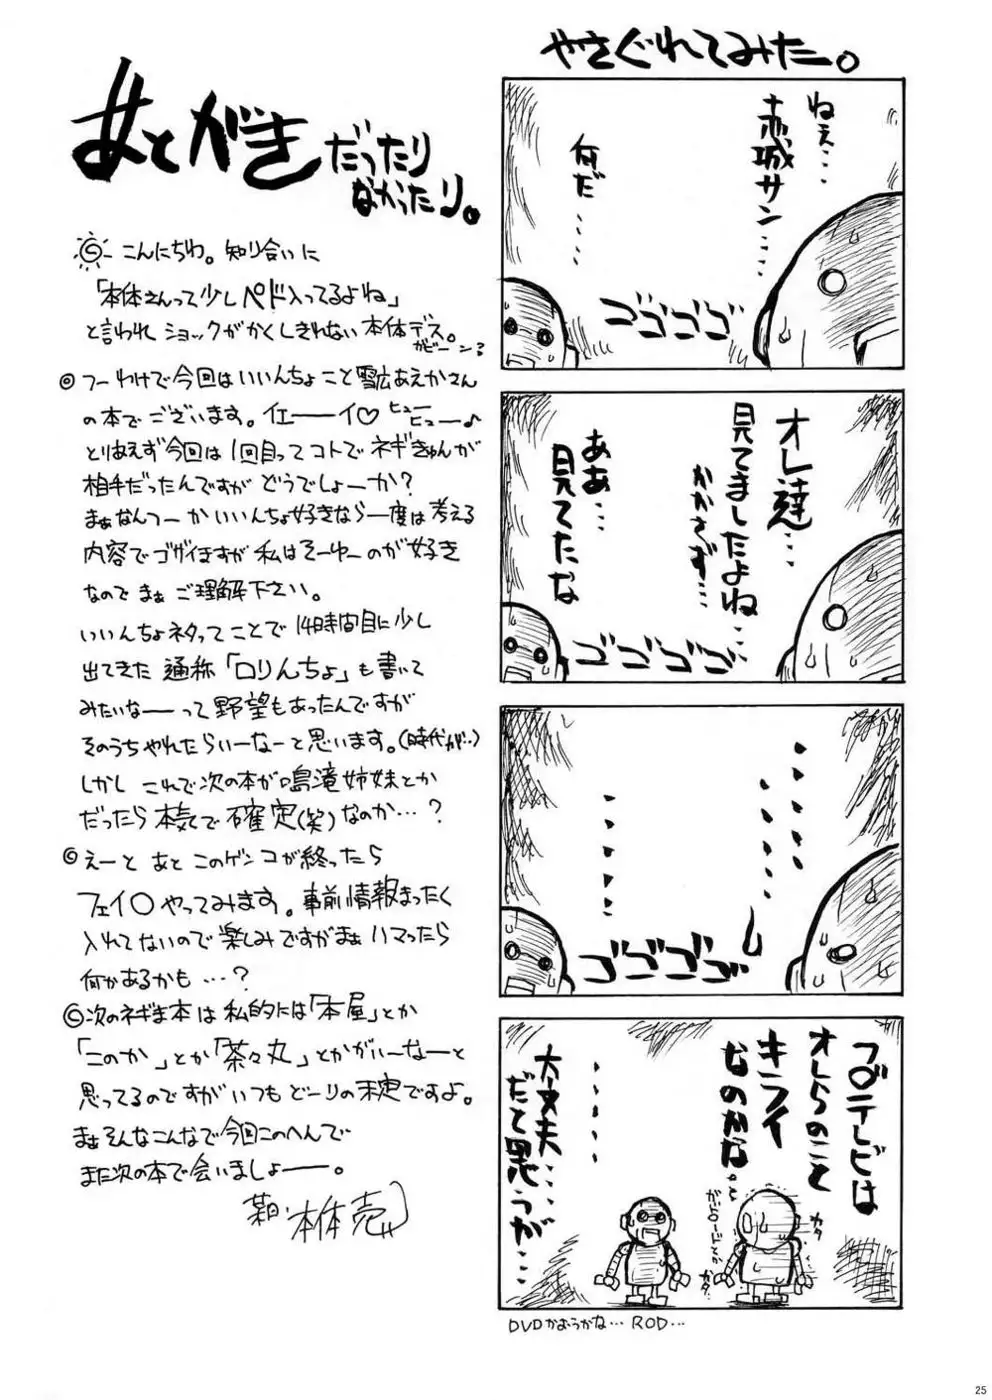 やさぐれてみた。
ねぇ・・・
赤城サン・・・
何だ・・・・
ゴゴゴゴ
オレ達・・・
見てましたよね・・・
かかさず・・・
ああ・・・
見てたな
ゴゴゴゴ
ゴゴゴゴ
フ○テレビは
オレらのこと
キライ
なのかな。
ガ○ードとか
と
カタ
カタ
大丈夫・・・
だと思うが・・・
DVDかおうかな・・・ ROD・・・
あとがきだったり
なかったり。
こんにちわ。知り合いに
「本体さんって少しペド入ってるよね」
と言われショックがかくしきれない本体デス。
ガビーン
つーわけで今回はいいんちょこと雪広あえかさん
の本でございます。イエーーイ♡ヒューヒュー♪
とりあえず今回は1回目ってコトでネギきゅんが
相手だったんですがどうでしょーか？
まぁなんつーかいいんちょ好きなら一度は考える
内容でゴザイますが私はそーゆーのが好き
なのでまぁご理解下さい。
いいんちょネタってことで14時間目に少し
出てきた通称「ロリんちょ」も書いて
みたいなーーって野望もあったんですが
そのうちやれたらいーなーと思います。(時代が…)
しかしこれで次の本が鳴滝姉妹とか
だったら本気で確定(笑)なのか…？
えーとあとこのゲンコが終ったら
フェイ○やってみます。事前情報まったく
入れてないので楽しみですがまぁハマったら
何かあるかも…？
次のネギま本は私的には「本屋」とか
「このか」とか「茶々丸」とかがいーなーと
思ってるのですがいつもどーりの未定ですよ。
まぁそんなこんなで今回このへんで
また次の本で会いましょーー。
本体売
25